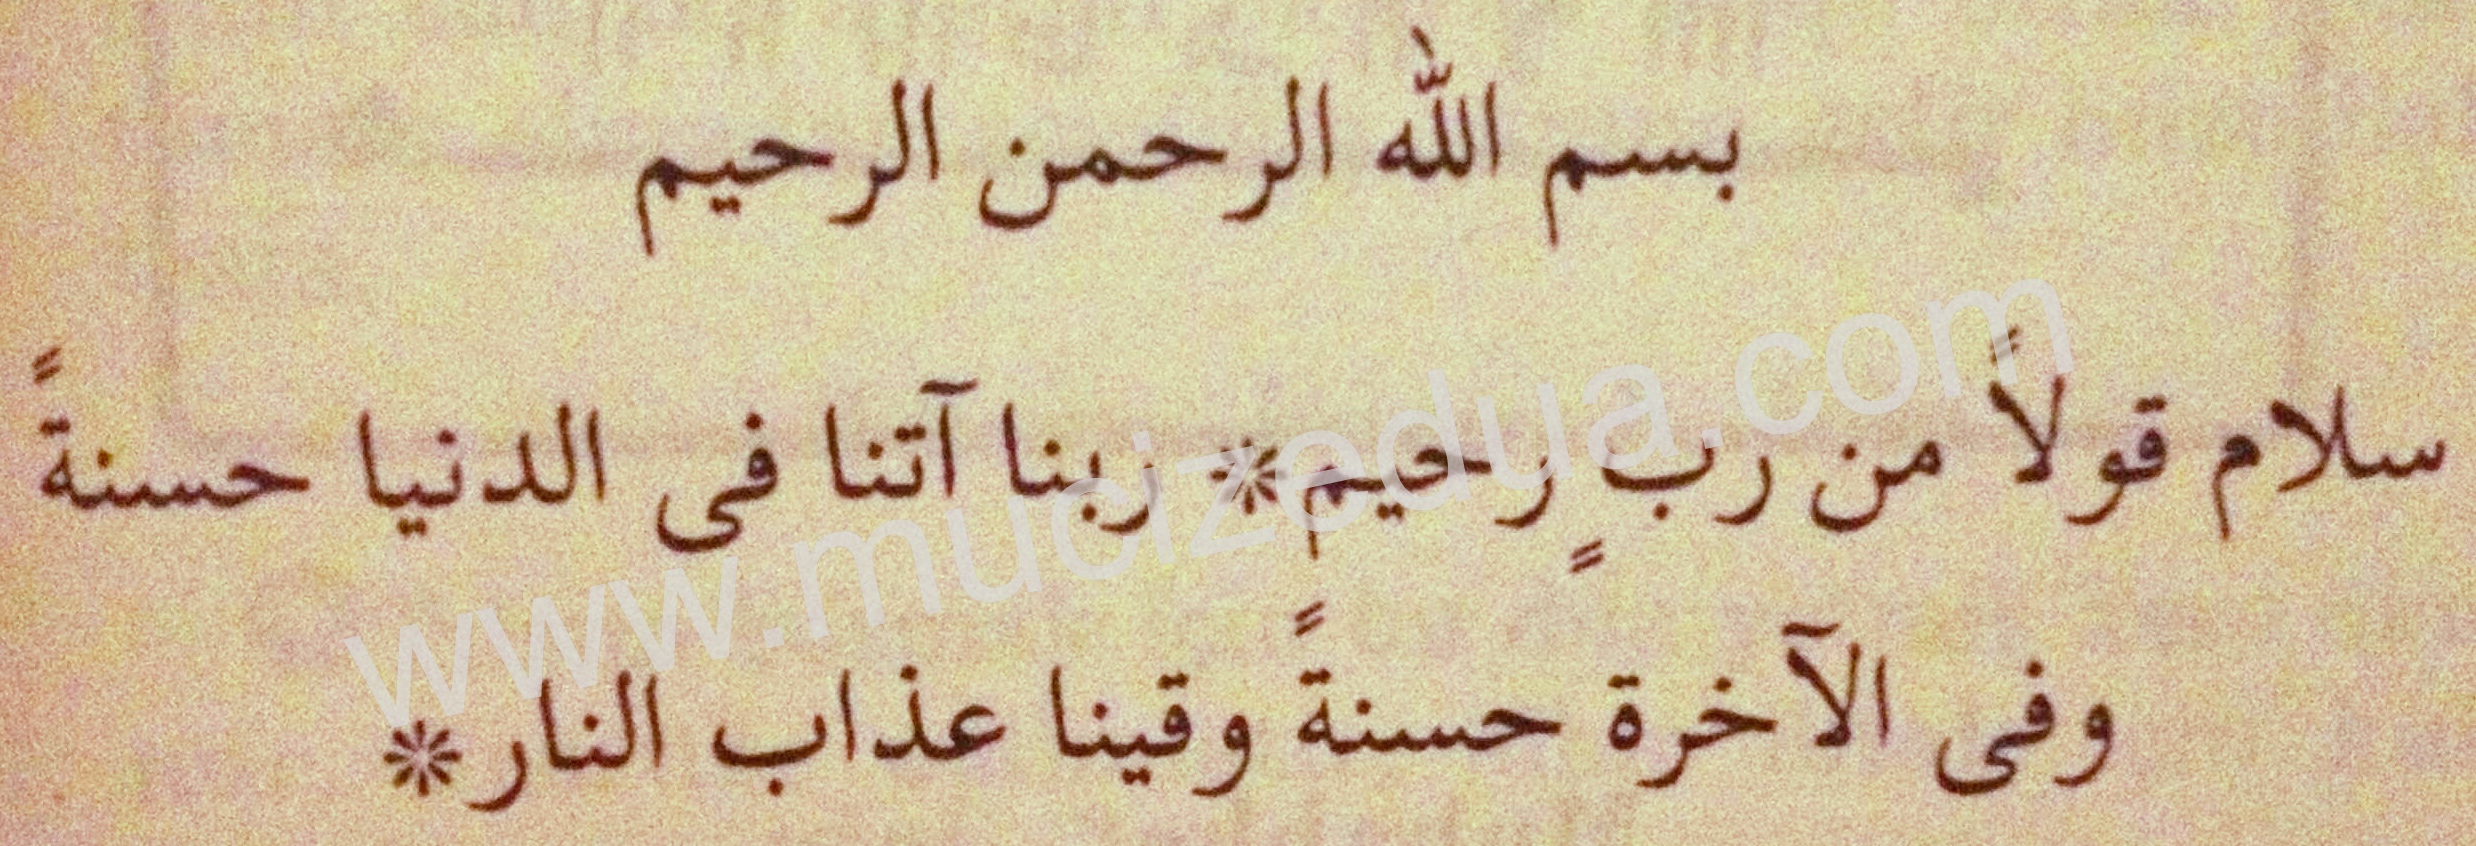 بسم الله الرحمن الرحيم
سلام قولاً من ربٍ رحيم* ربنا آتنا فى الدنيا حسنةً
وفى الآخرة حسنةً وقينا عذاب النار*
www.mucizedua.com